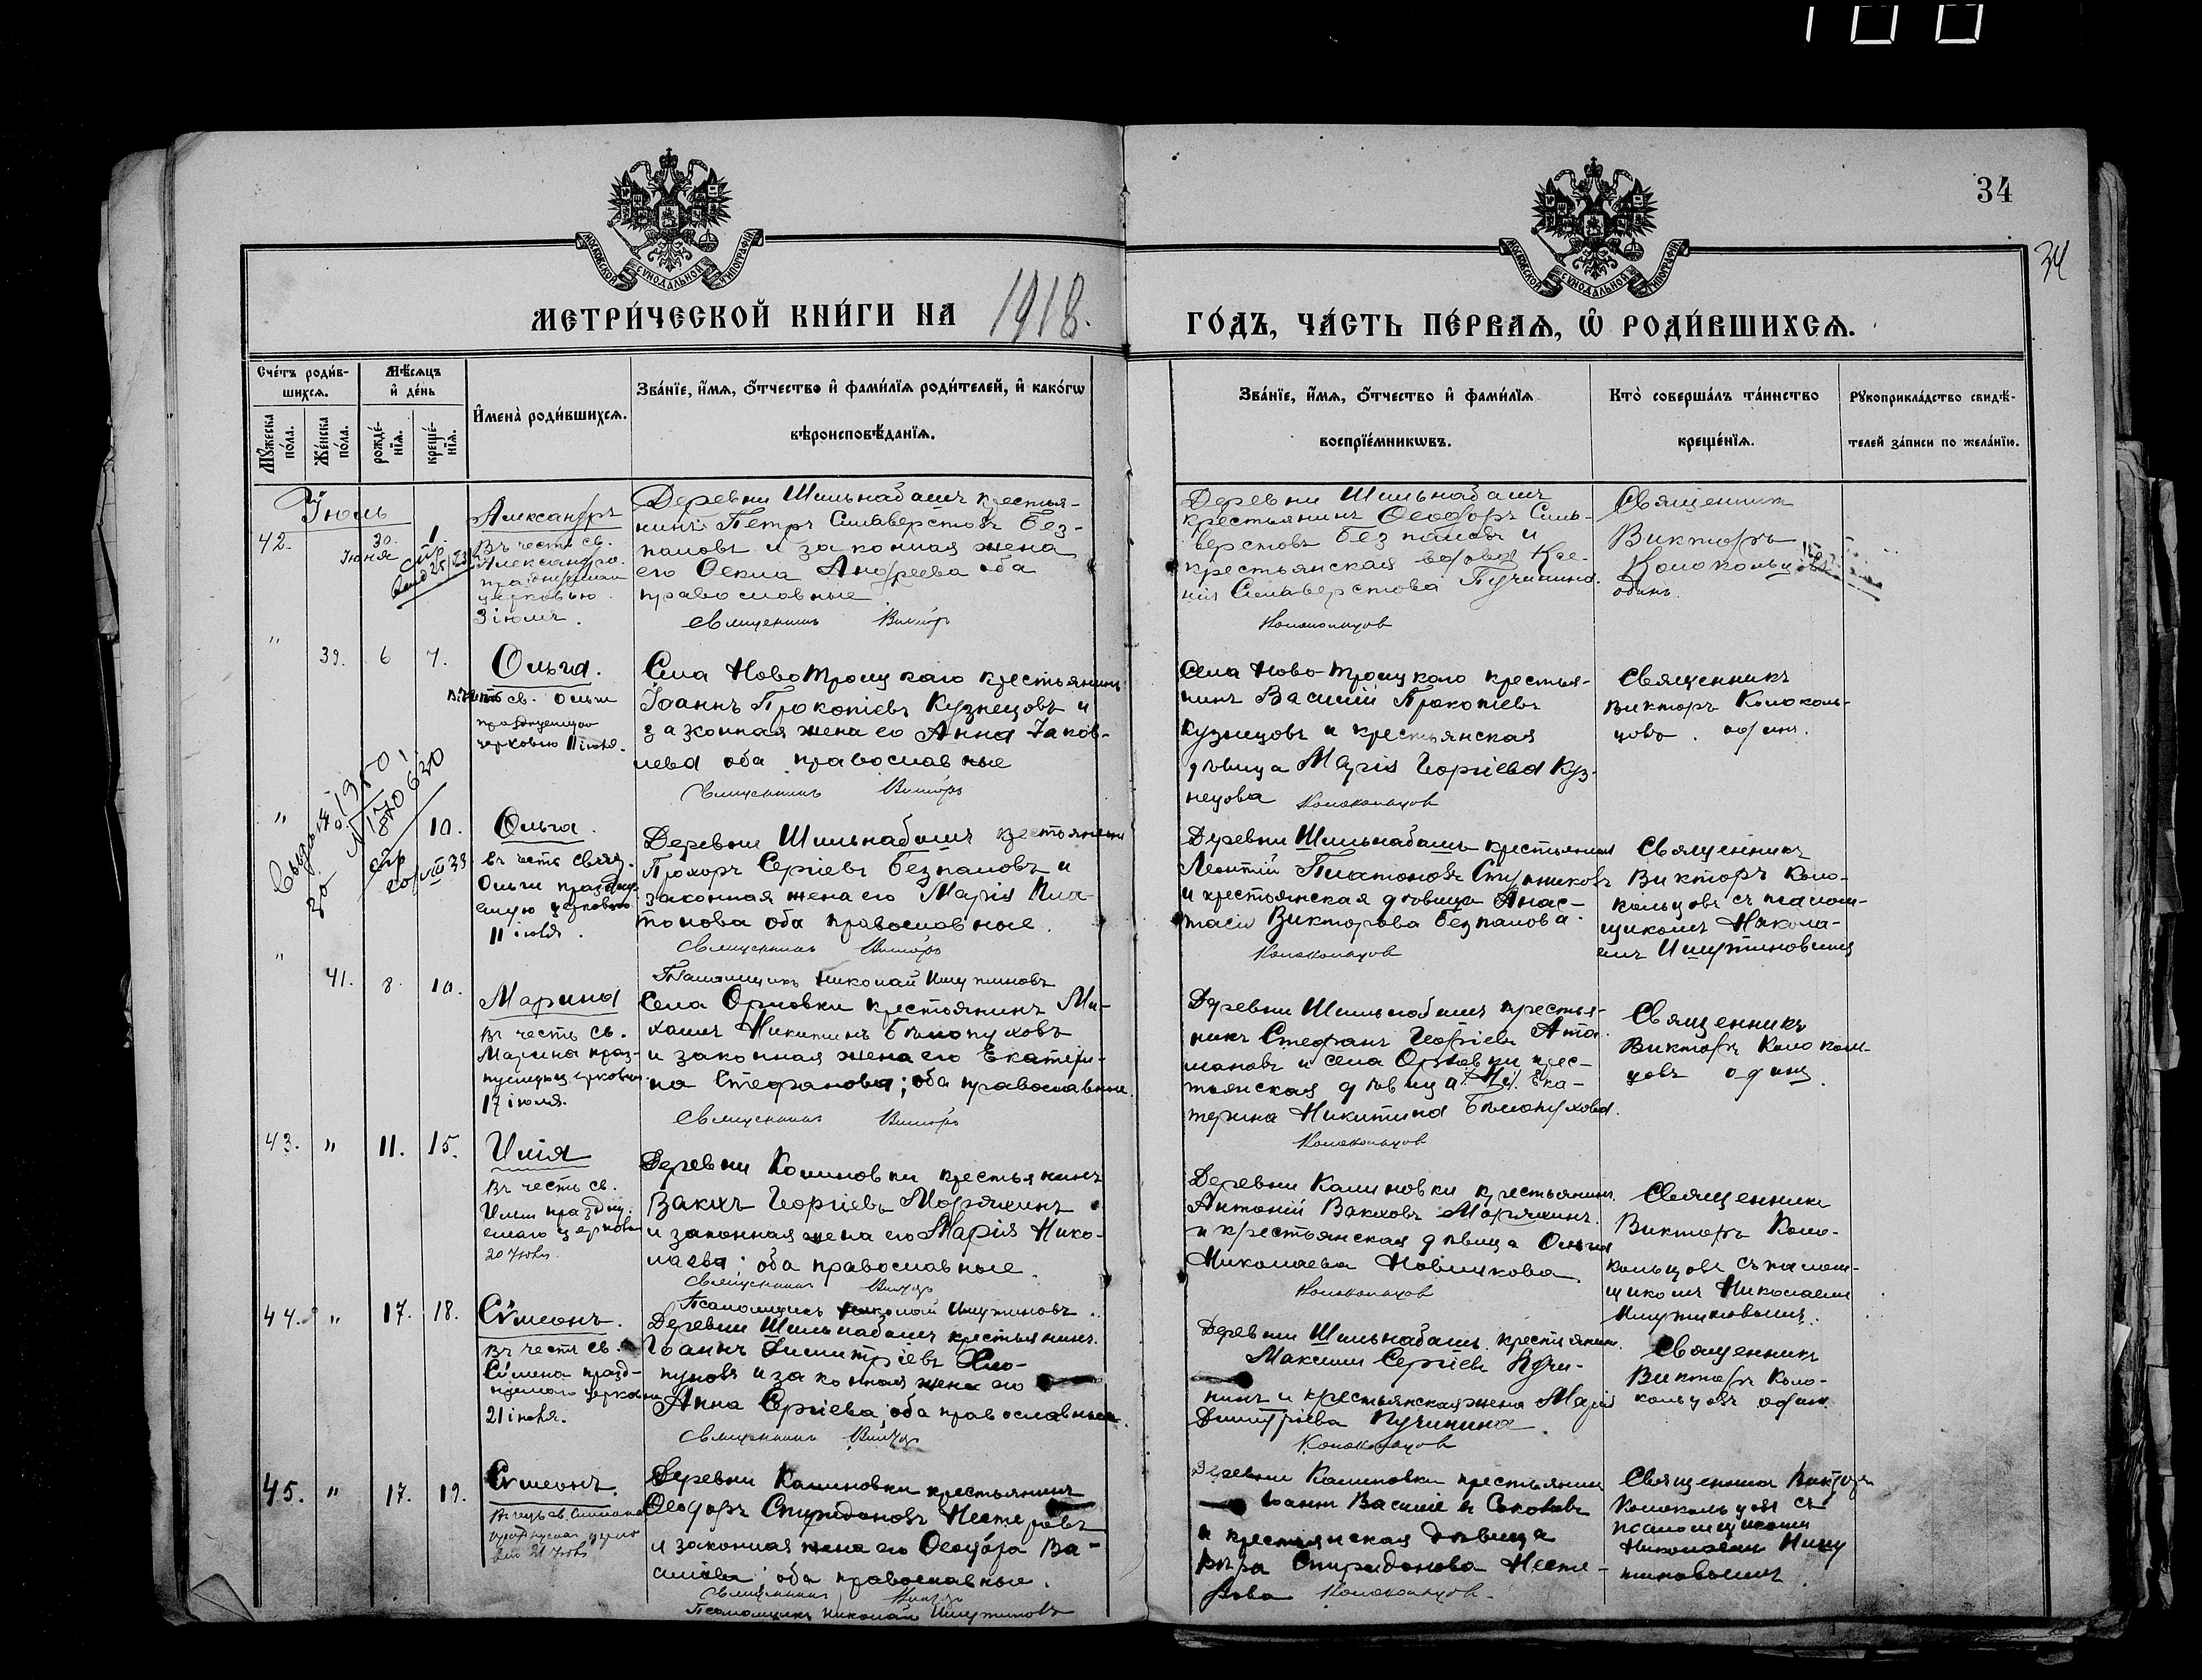 34
34
МОСКОВСКОЙ СѴНОДАЛЬНОЙ ТИПОГРАФІИ
МОСКОВСКОЙ СѴНОДАЛЬНОЙ ТИПОГРАФІИ
МЕТРИ́ЧЕСКОЙ КНИ́ГИ НА 1918.
ГО́ДЪ, ЧА́СТЬ ПЕ́РВАѦ, Ѽ РОДИ́ВШИХСѦ.
Сче́тъ роди́в-
шихсѧ.
Мꙋ́жеска по́ла.
Же́нска по́ла.
Мѣ́сѧцъ
и҆ де́нь
рожде́-
нїѧ.
креще́-
нїѧ.
И҆мена̀ роди́вшихсѧ.
Зва́нїе, и҆́мѧ, ѻ҆́тчество и҆ фами́лїѧ роди́телей, и҆ како́гѡ
вѣроисповѣ́данїѧ.
Зва́нїе, и҆́мѧ, ѻ҆́тчество и҆ фами́лїѧ
воспрїе́мникѡвъ.
Кто̀ соверша́лъ та́инство
креще́нїѧ.
Рꙋкоприкла́дство свидѣ́-
телей за́писи по жела́нїю.
Іюль
42.
30.
Іюня
1.
Александръ
Въ честь св.
Александра
церковью
3 іюля.
Деревни Шильнабашъ крестья-
нинъ Петръ Сильверстовъ Без-
паловъ и законная жена
его Ѳекла Андреева оба
православные
Священникъ Викторъ
Деревни Шильнабашъ
крестьянинъ Ѳеодоръ Силь-
верстовъ Безпалов и
крестьянская вдова Ксе-
нія Сильверстова Пучинина.
Колокольцов
Священник
Викторъ
Колокольцов
одинъ.
"
39.
6
7.
Ольга.
св. Ольги
празднуемую
церковью 11 іюля.
Села Новотроицкаго крестьянинъ
Іоаннъ Прокопіевъ Кузнецовъ и
законная жена его Анна Іаков-
лева оба православные
Священникъ Викторъ
Села Ново-троицкого крестья-
нинъ Василій Прокопіевъ
Кузнецовъ и крестьянская
дѣвица Марія Георгіева Куз-
нецова Колокольцов
Священникъ
Викторъ Коколь-
цовъ. один.
"
10.
Ольга.
въ честь свят.
Ольги праздну-
емую церковью
11 іюля.
Деревни Шильнабашъ крестьянинъ
Прохоръ Сергіевъ Безпаловъ и
законная жена его Марія Пла-
тонова оба православные.
Священникъ Викторъ
Псаломщикъ Николай Ишутиновъ
Деревни Шильнабашъ крестьянинъ
Леонтій Платоновъ Ступниковъ
и крестьянская дѣвица Анас-
тасія Викторова Безпалова.
Колокольцов
Священникъ
Викторъ Коло-
кольцовъ съ псалом-
щикомъ Никола-
емъ Ишутиновымъ
"
41.
8.
10.
Марина
Въ честь св.
Марина праз-
нуемыя церковью
17 іюля.
Села Орловки крестьянинъ Ми-
хаилъ Никитинъ Бѣлопуховъ
и законная жена его Екатери-
на Стефанова; оба православные.
Священникъ Викторъ
Деревни Шильнабашъ крестья-
нинъ Стефанъ Георгіевъ Ата-
мановъ и села Орловки крес-
тьянская дѣвица Ека-
терина Никитина Бѣлопухова.
Колокольцов
Священникъ
Викторъ Колоколь-
цовъ один.
43.
"
11.
15.
Илія
Въ честь св.
Ильи праздну-
емаго церковью
20 Іюля.
Деревни Калиновки крестьянинъ
Вакхъ Георгіевъ Морячинъ
и законная жена его Марія Нико-
лаева; оба православные.
Священникъ Викторъ
Псаломщикъ Николай Ишутиновъ
Деревни Калиновки крестьянинъ
Антоній Вакховъ Морячинъ
и крестьянская дѣвица Ольга
Николаева Новикова
Колокольцов
Священникъ
Викторъ Коло-
кольцовъ съ псалом-
щикомъ Николаемъ
Ишутиновымъ.
44.
"
17.
18.
Сѵмеонъ.
Въ честь св.
Сѵмеона празд-
нуемаго церковью
21 іюля.
Деревни Шильнабашъ крестьянинъ.
Іоаннъ Димитріевъ Хло-
пуновъ и законная жена его
Анна Сергіева; оба православные.
Священникъ Викторъ
Деревни Шильнабашъ крестьянинъ
Максимъ Сергіевъ Пучи-
нинъ и крестьянская жена Марія
Димитріева Пучинина.
Колокольцов
Священникъ
Викторъ Коло-
кольцовъ один.
45.
"
17.
19.
Сѵмеонъ.
Деревни Калиновки крестьянинъ
Ѳеодоръ Спиридоновъ Нестеровъ
и законная жена его Ѳеодора Ва-
силіева; оба православные.
Священникъ Викторъ
Псаломщикъ Николай Ишутиновъ
Деревни Калиновки крестьянинъ
Іоаннъ Василіевъ Соколовъ
и крестьянская дѣвица
Вѣра Спиридонова Несте-
рова Колокольцов.
Священникъ Викторъ
Колокольцовъ съ
псаломщикомъ
Николаемъ Ишу-
тиновымъ